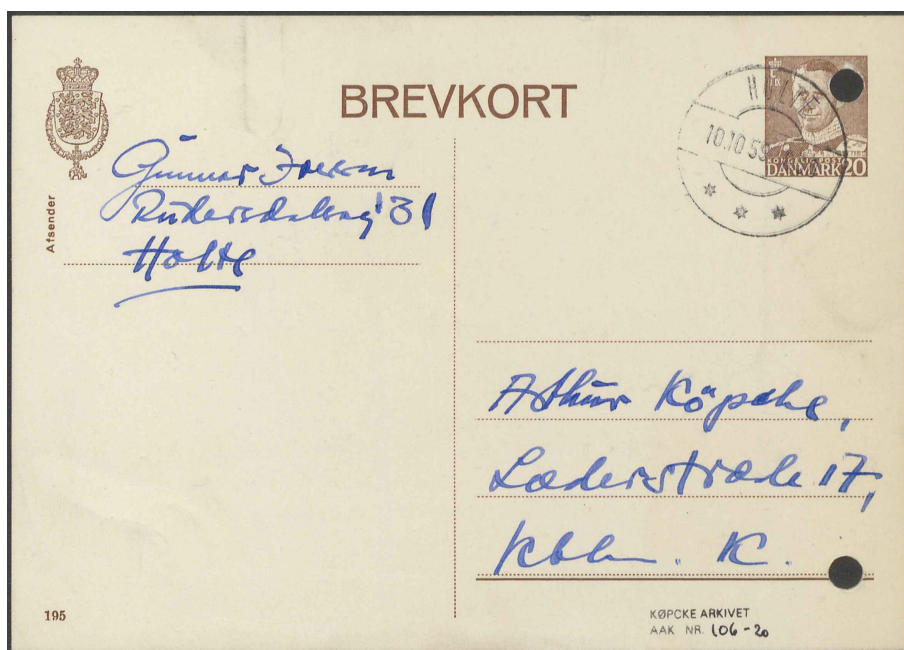 BREVKORT
HOLTE
10.10.59
KONGELIG POST
DANMARK 20
Afsender
Gunnar
Rudersdalsvej 31
Holte
Arthur Köpcke,
Læderstræde 17,
Kbh. K.
195
KØPCKE ARKIVET
AAK NR. 106-20